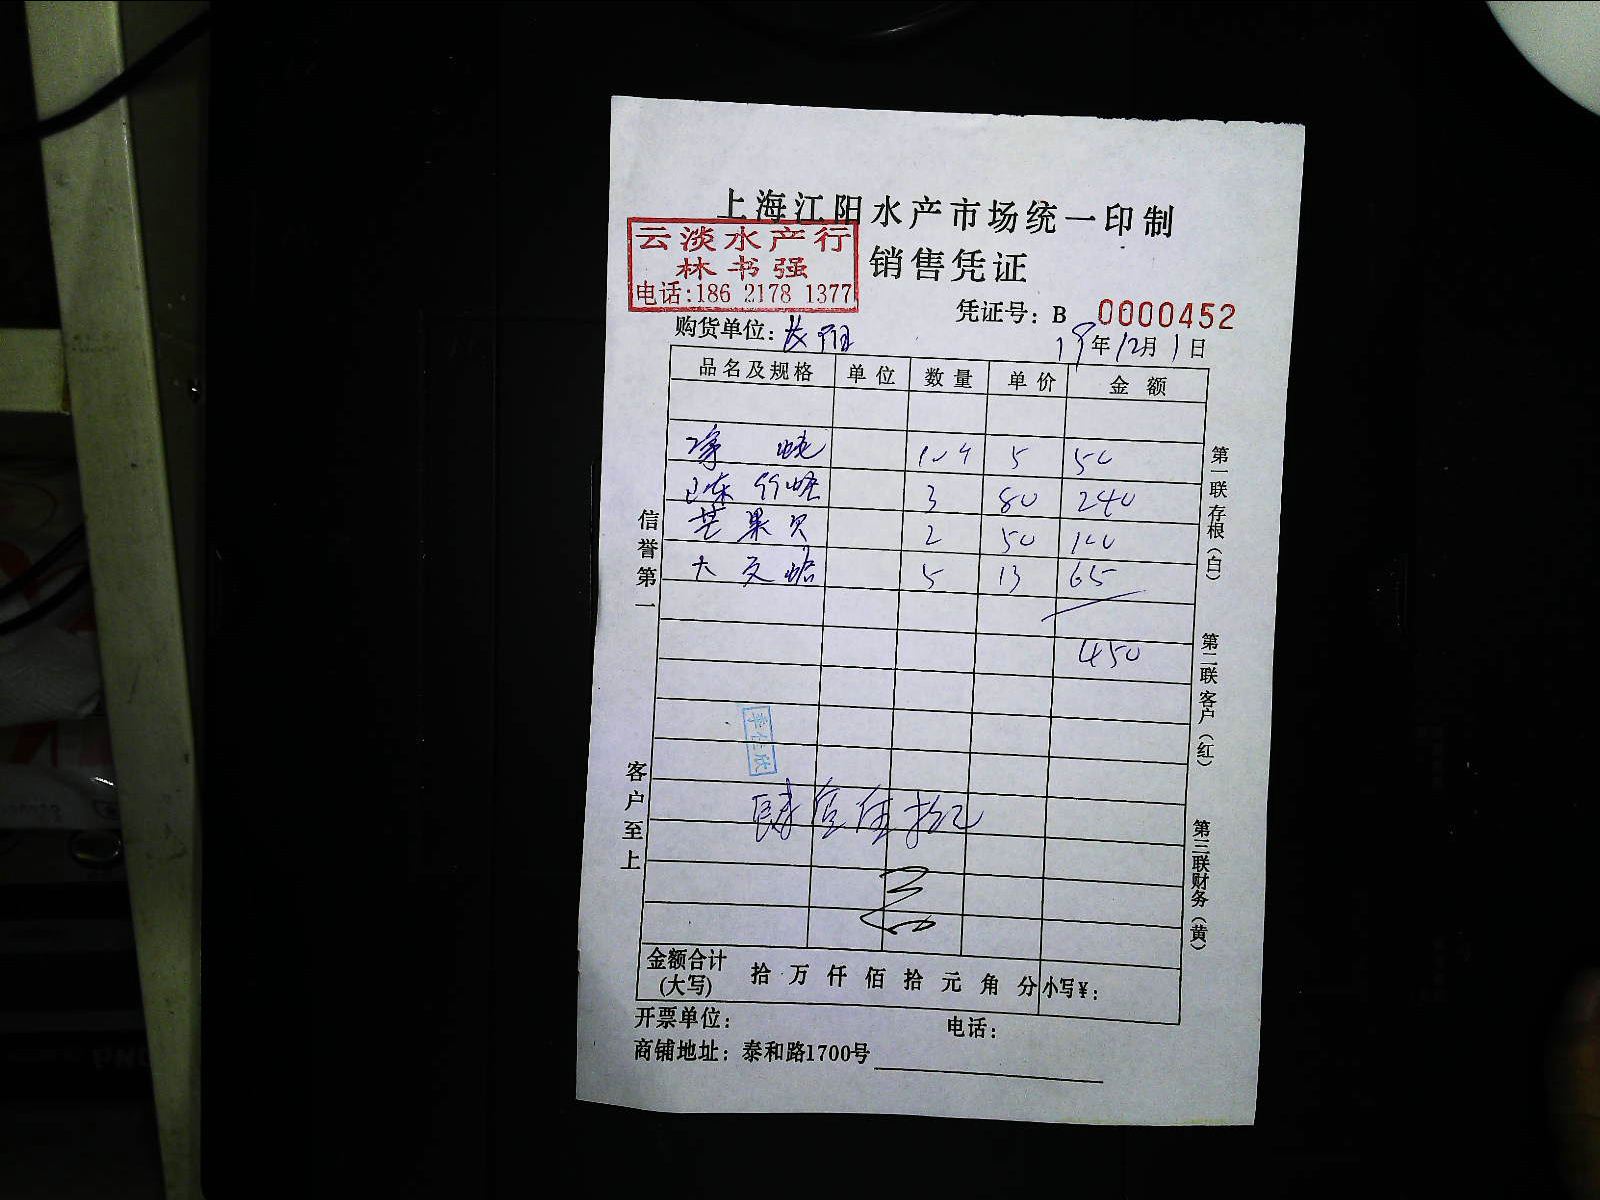 上海江阳水产市场统一印制
云淡水产行
林书强
电话:186 2178 1377
销售凭证
凭证号: B 0000452
购货单位:
19年12月1日
品名及规格 单位 数量 单价 金额
5 50
3 80 240
芒果贝 2 50 100
大 5 13 65
450
肆佰伍拾元
金额合计(大写) 拾 万 仟 佰 拾 元 角 分 小写¥:
开票单位: 电话:
商铺地址: 泰和路1700号
信誉第一
客户至上
第一联存根(白)
第二联客户(红)
第三联财务(黄)